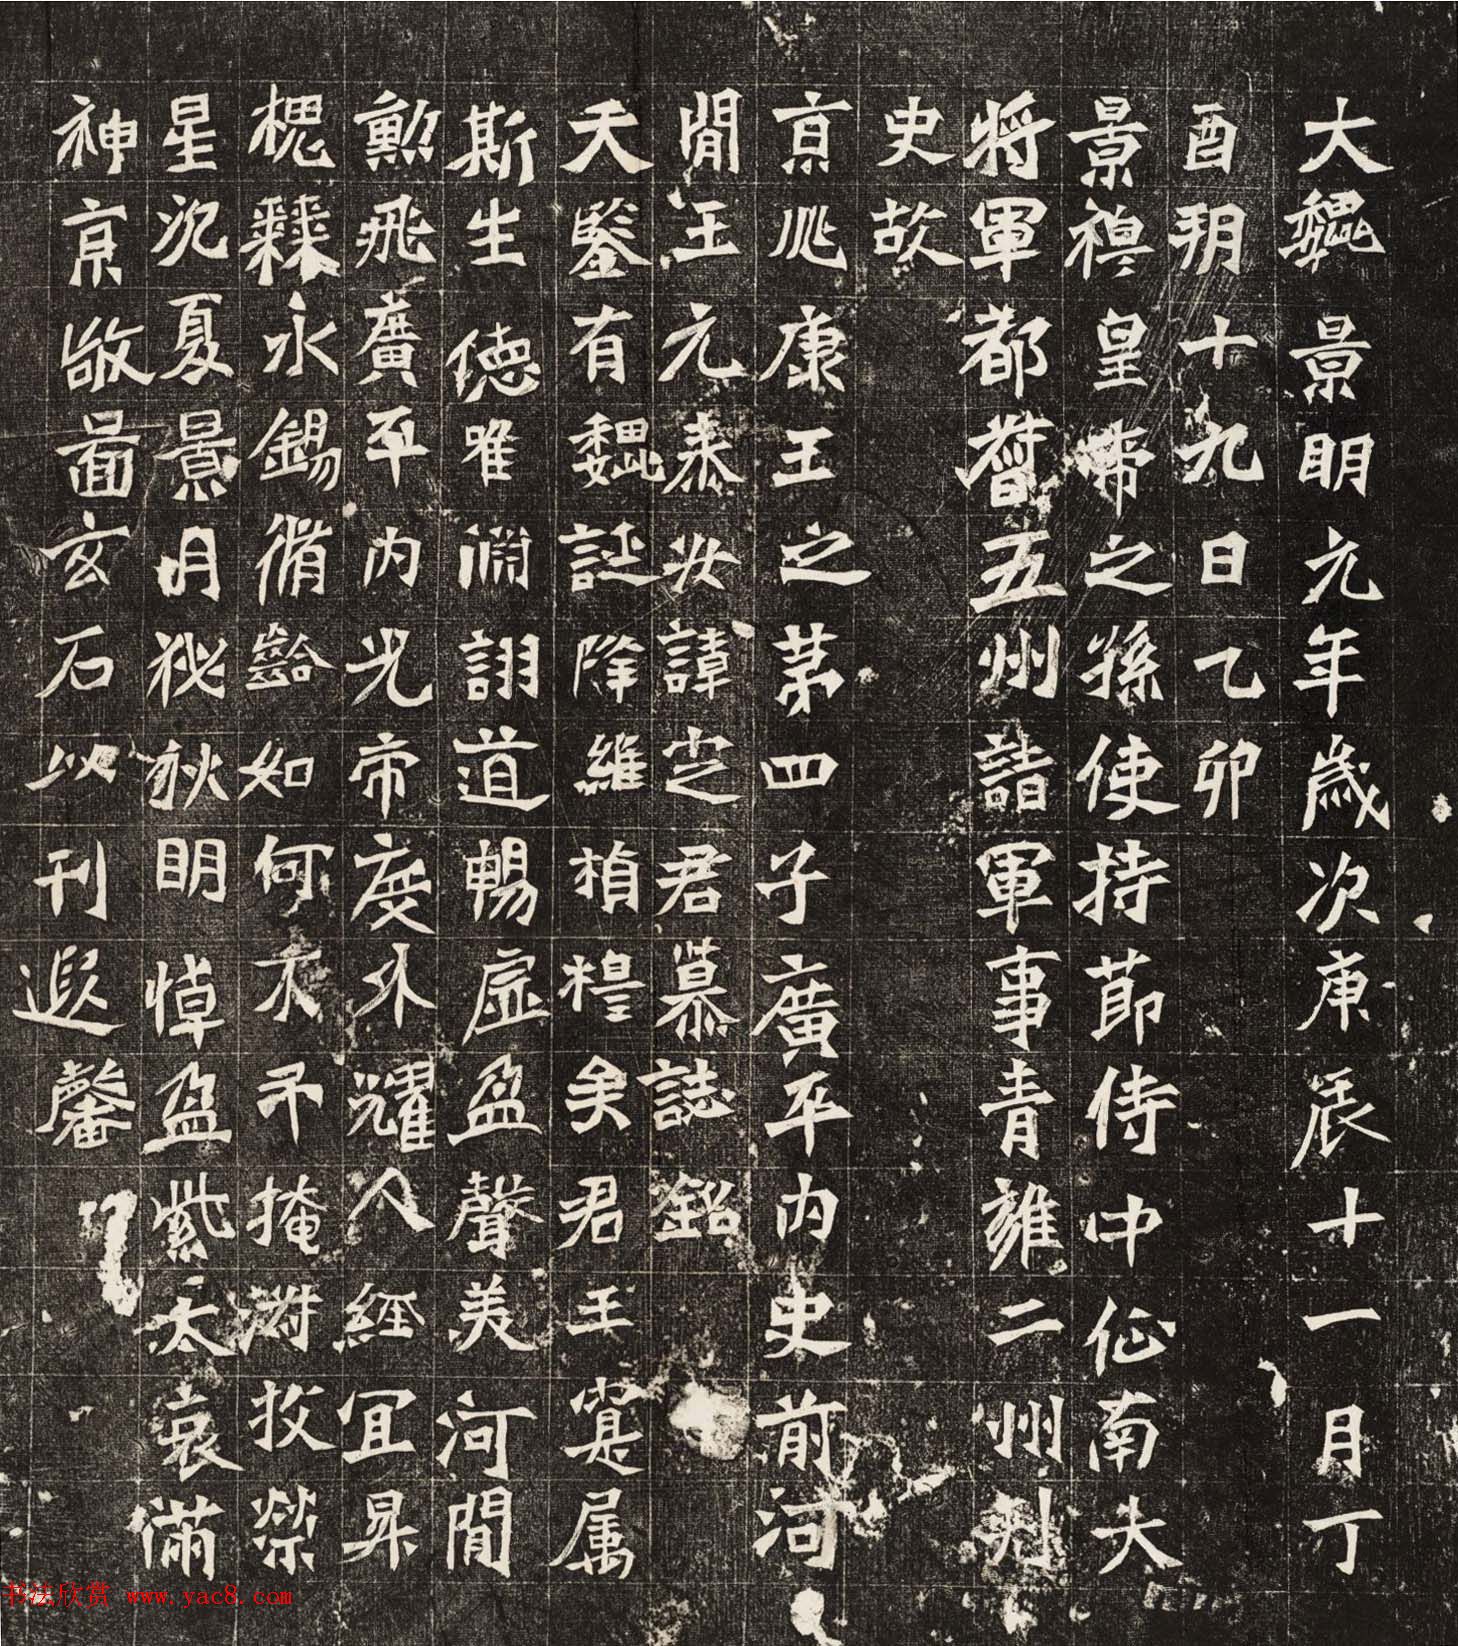 大魏景明元年歲次庚辰十一月丁
酉朔十九日乙卯
景穆皇帝之孫使持節侍中征南夫
將軍都督五州諸軍事青雍二州刺
史故
京兆康王之第四子廣平内史前河
間王元泰安諱定君墓誌銘
天鑒有魏誕降維楨穆矣君王寔属
斯生德唯淵詡道暢虛盈聲美河間
勳飛廣平内光帝度外耀人經宜昇
槐棘永錫脩齡如何不弔掩浒投榮
星沉夏景月秘秋明悼盈紫太哀滿
神京敬圖玄石以刊遐馨
书法欣赏 www.yac8.com